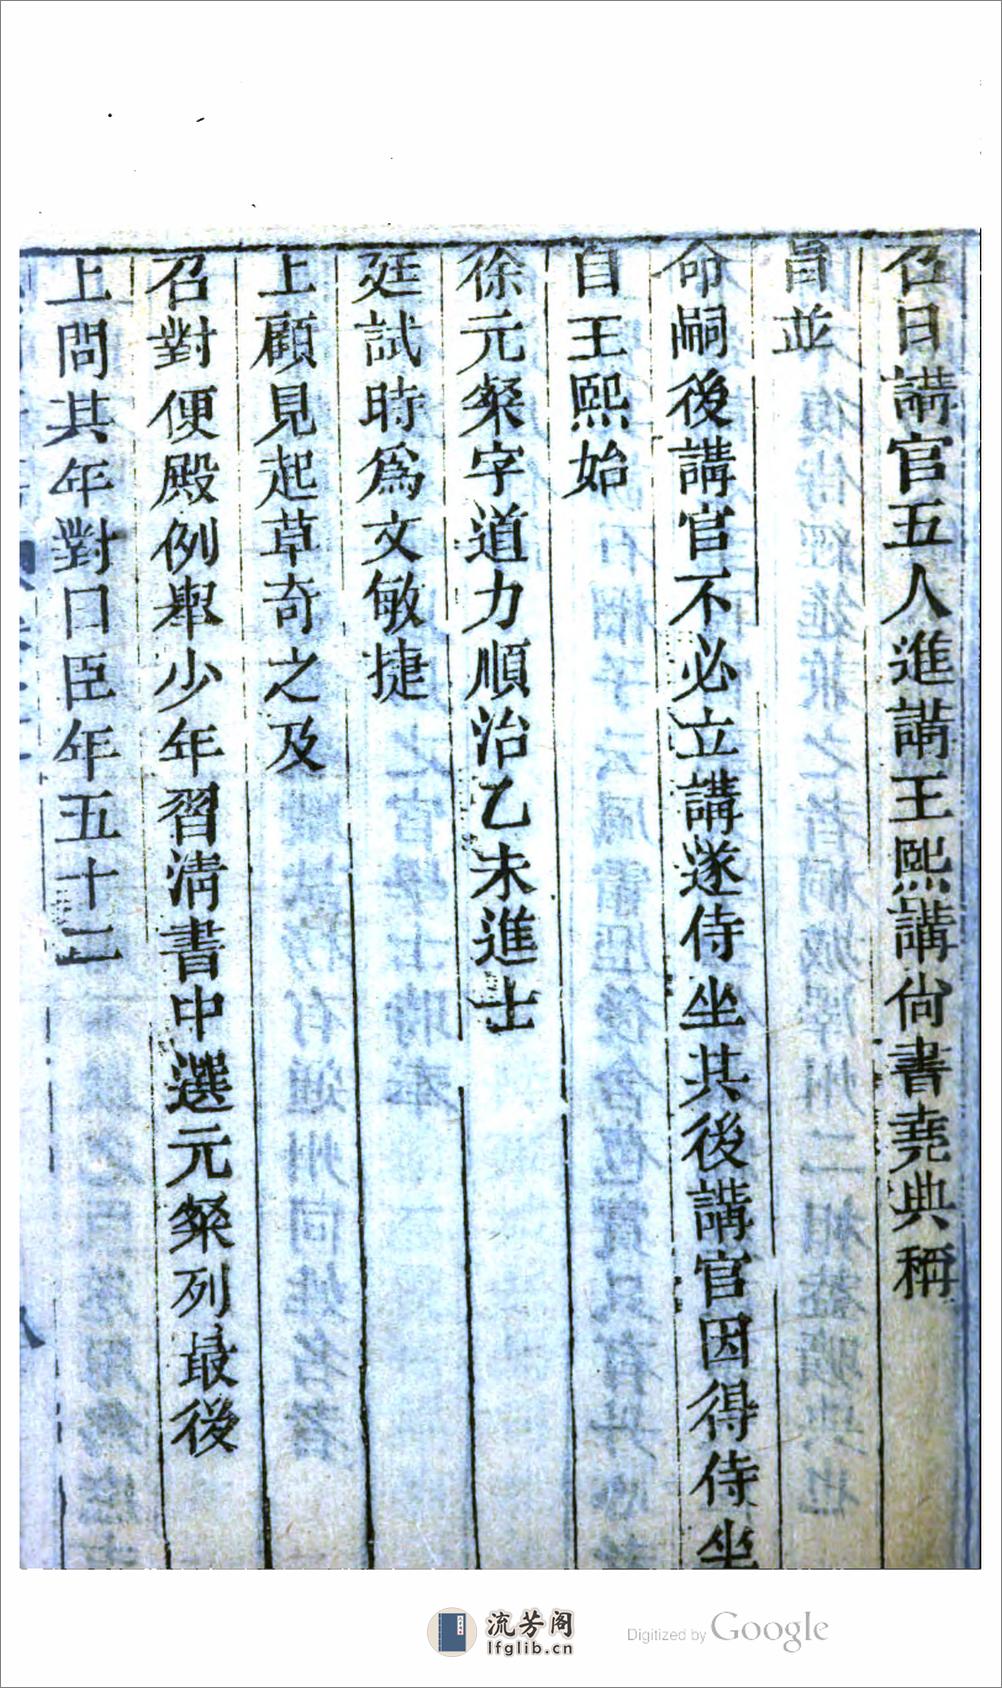 召日講官五人進講王熙講尙書堯典稱
旨並
命嗣後講官不必立講遂侍坐其後講官因得侍坐
自王熙始
徐元粲字道力順治乙未進士
廷試時爲文敏捷
上顧見起草奇之及
召對便殿例舉少年習淸書中選元粲列最後
上問其年對曰臣年五十二
流芳阁
lfglib.cn
Digitized by Google